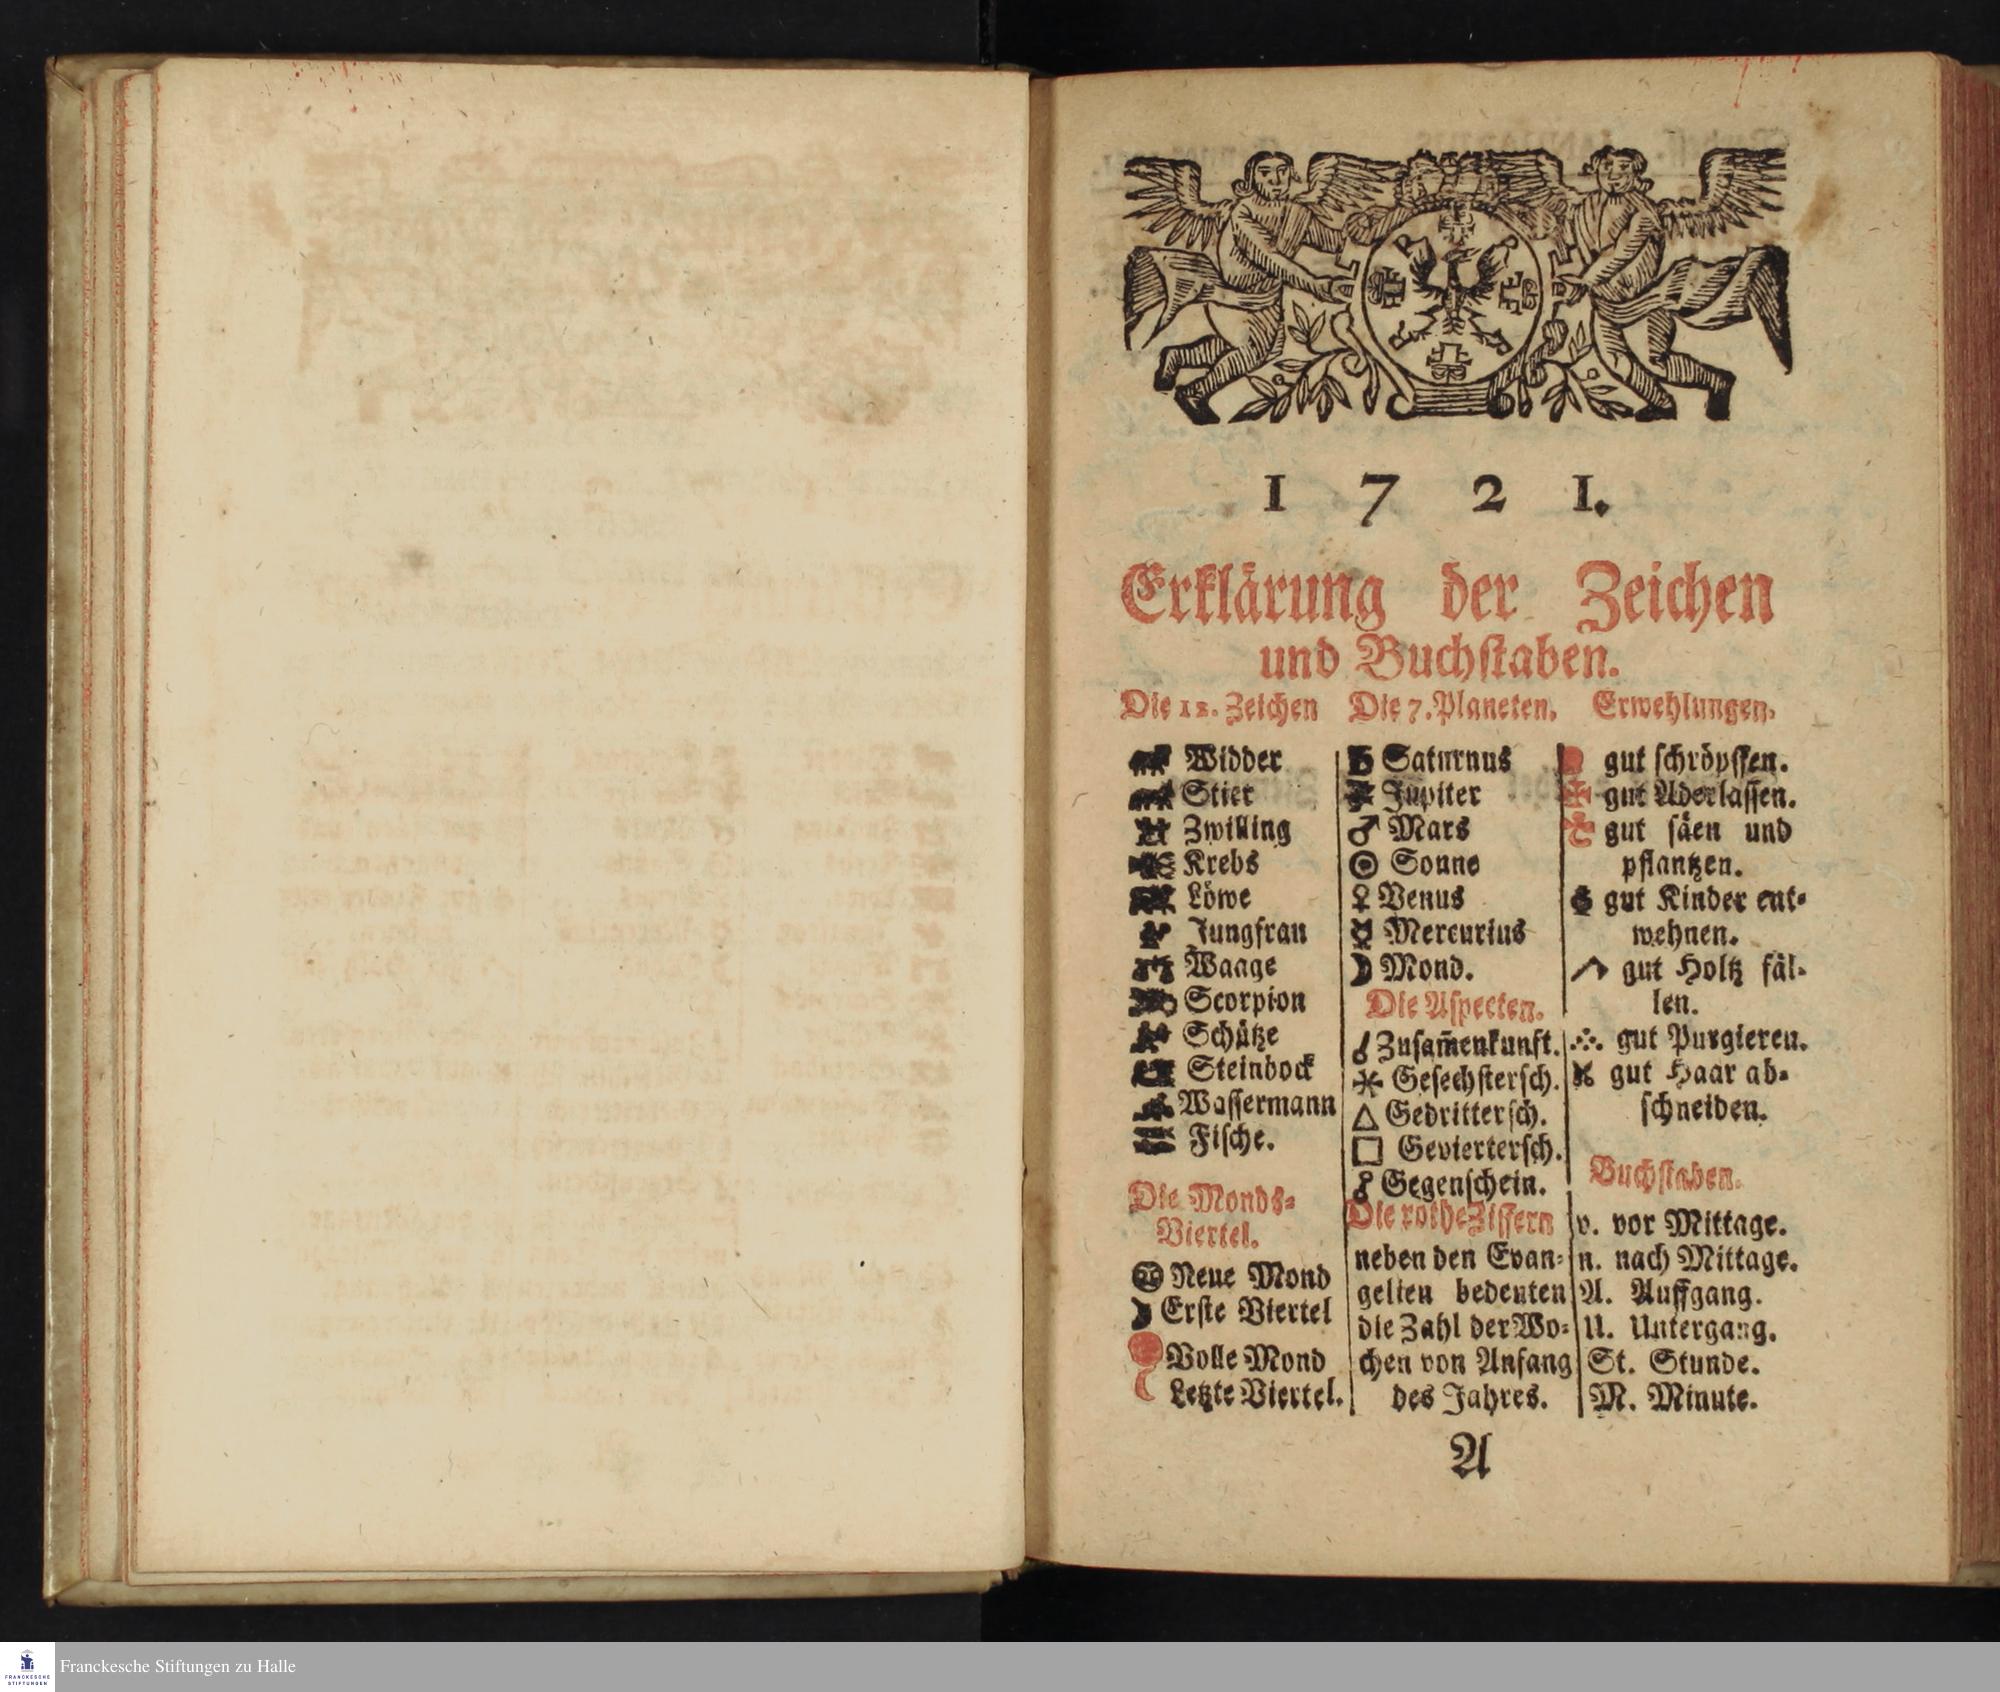 1721.
Erklärung der Zeichen
und Buchstaben.
Die 12. Zeichen
Widder
Stier
Zwilling
Krebs
Löwe
Jungfrau
Waage
Scorpion
Schütze
Steinbock
Wassermann
Fische.
Die Monds-
Viertel.
Neue Mond
Erste Viertel
Volle Mond
Letzte Viertel.
Die 7. Planeten.
♄ Saturnus
♃ Jupiter
♂ Mars
☉ Sonne
♀ Venus
☿ Mercurius
☽ Mond.
Die Aspecten.
☌ Zusam̃enkunft.
⚹ Gesechstersch.
△ Gedrittersch.
□ Geviertersch.
☍ Gegenschein.
Die rothe Ziffern
neben den Evan-
gelien bedeuten
die Zahl der Wo-
chen von Anfang
des Jahres.
Erwehlungen.
gut schröpffen.
gut Aderlassen.
gut säen und
pflantzen.
gut Kinder ent-
wehnen.
gut Holtz fäl-
len.
gut Purgieren.
gut Haar ab-
schneiden.
Buchstaben.
v. vor Mittage.
n. nach Mittage.
A. Auffgang.
U. Untergang.
St. Stunde.
M. Minute.
A
FRANCKESCHE
STIFTUNGEN
Franckesche Stiftungen zu Halle